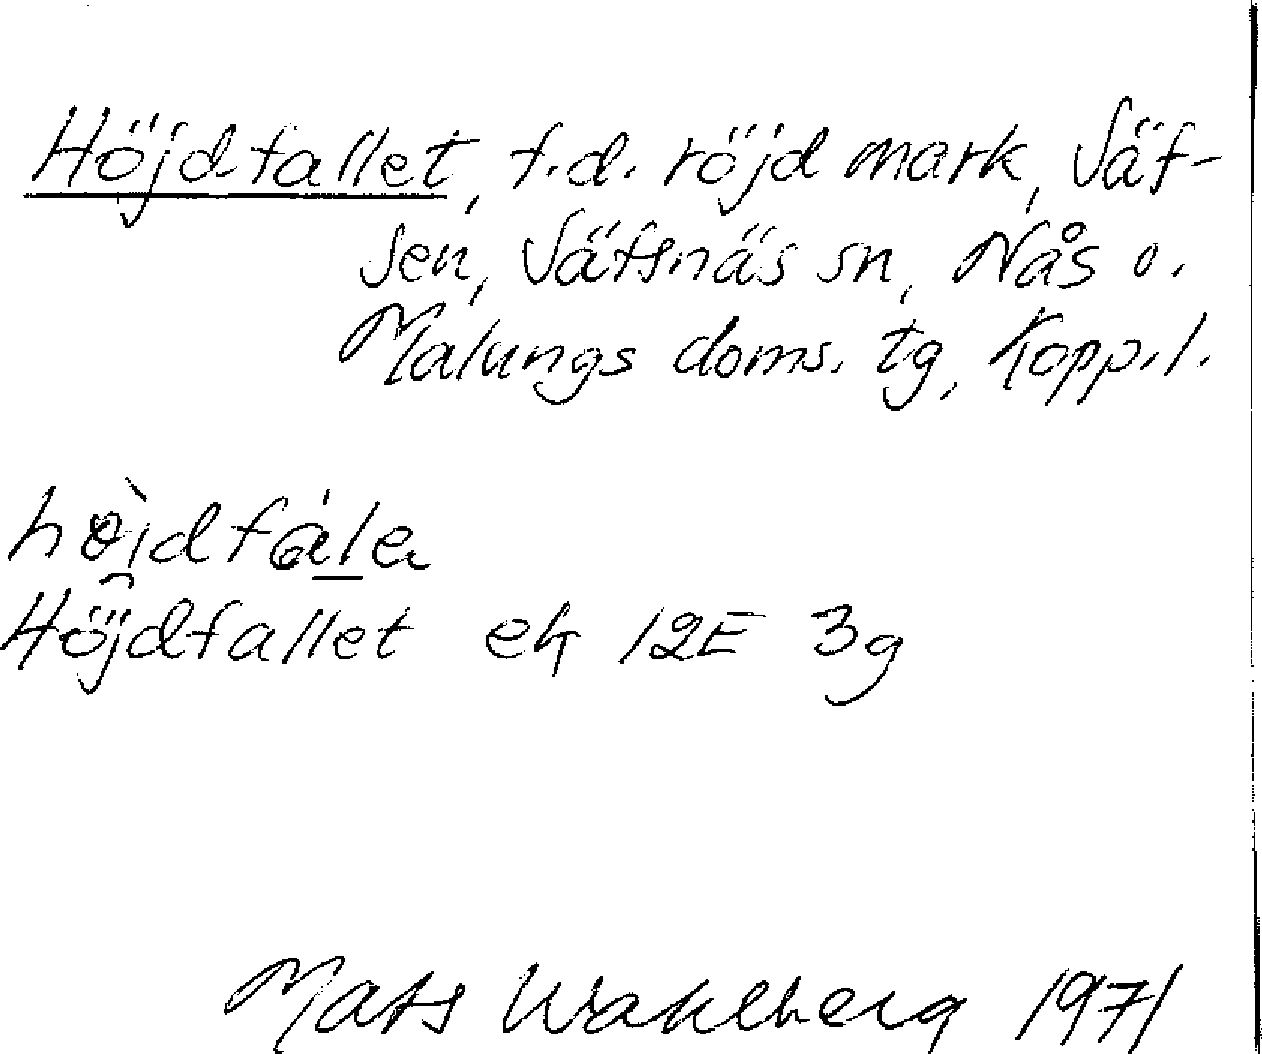 Höjdfallet, f.d. röjd mark, Säf-
sen, Säfsnäs sn, Nås o.
Malungs doms. tg, Kopp.l.
Höjdfallet ek 12E 3g
Mats Wahlberg 1971